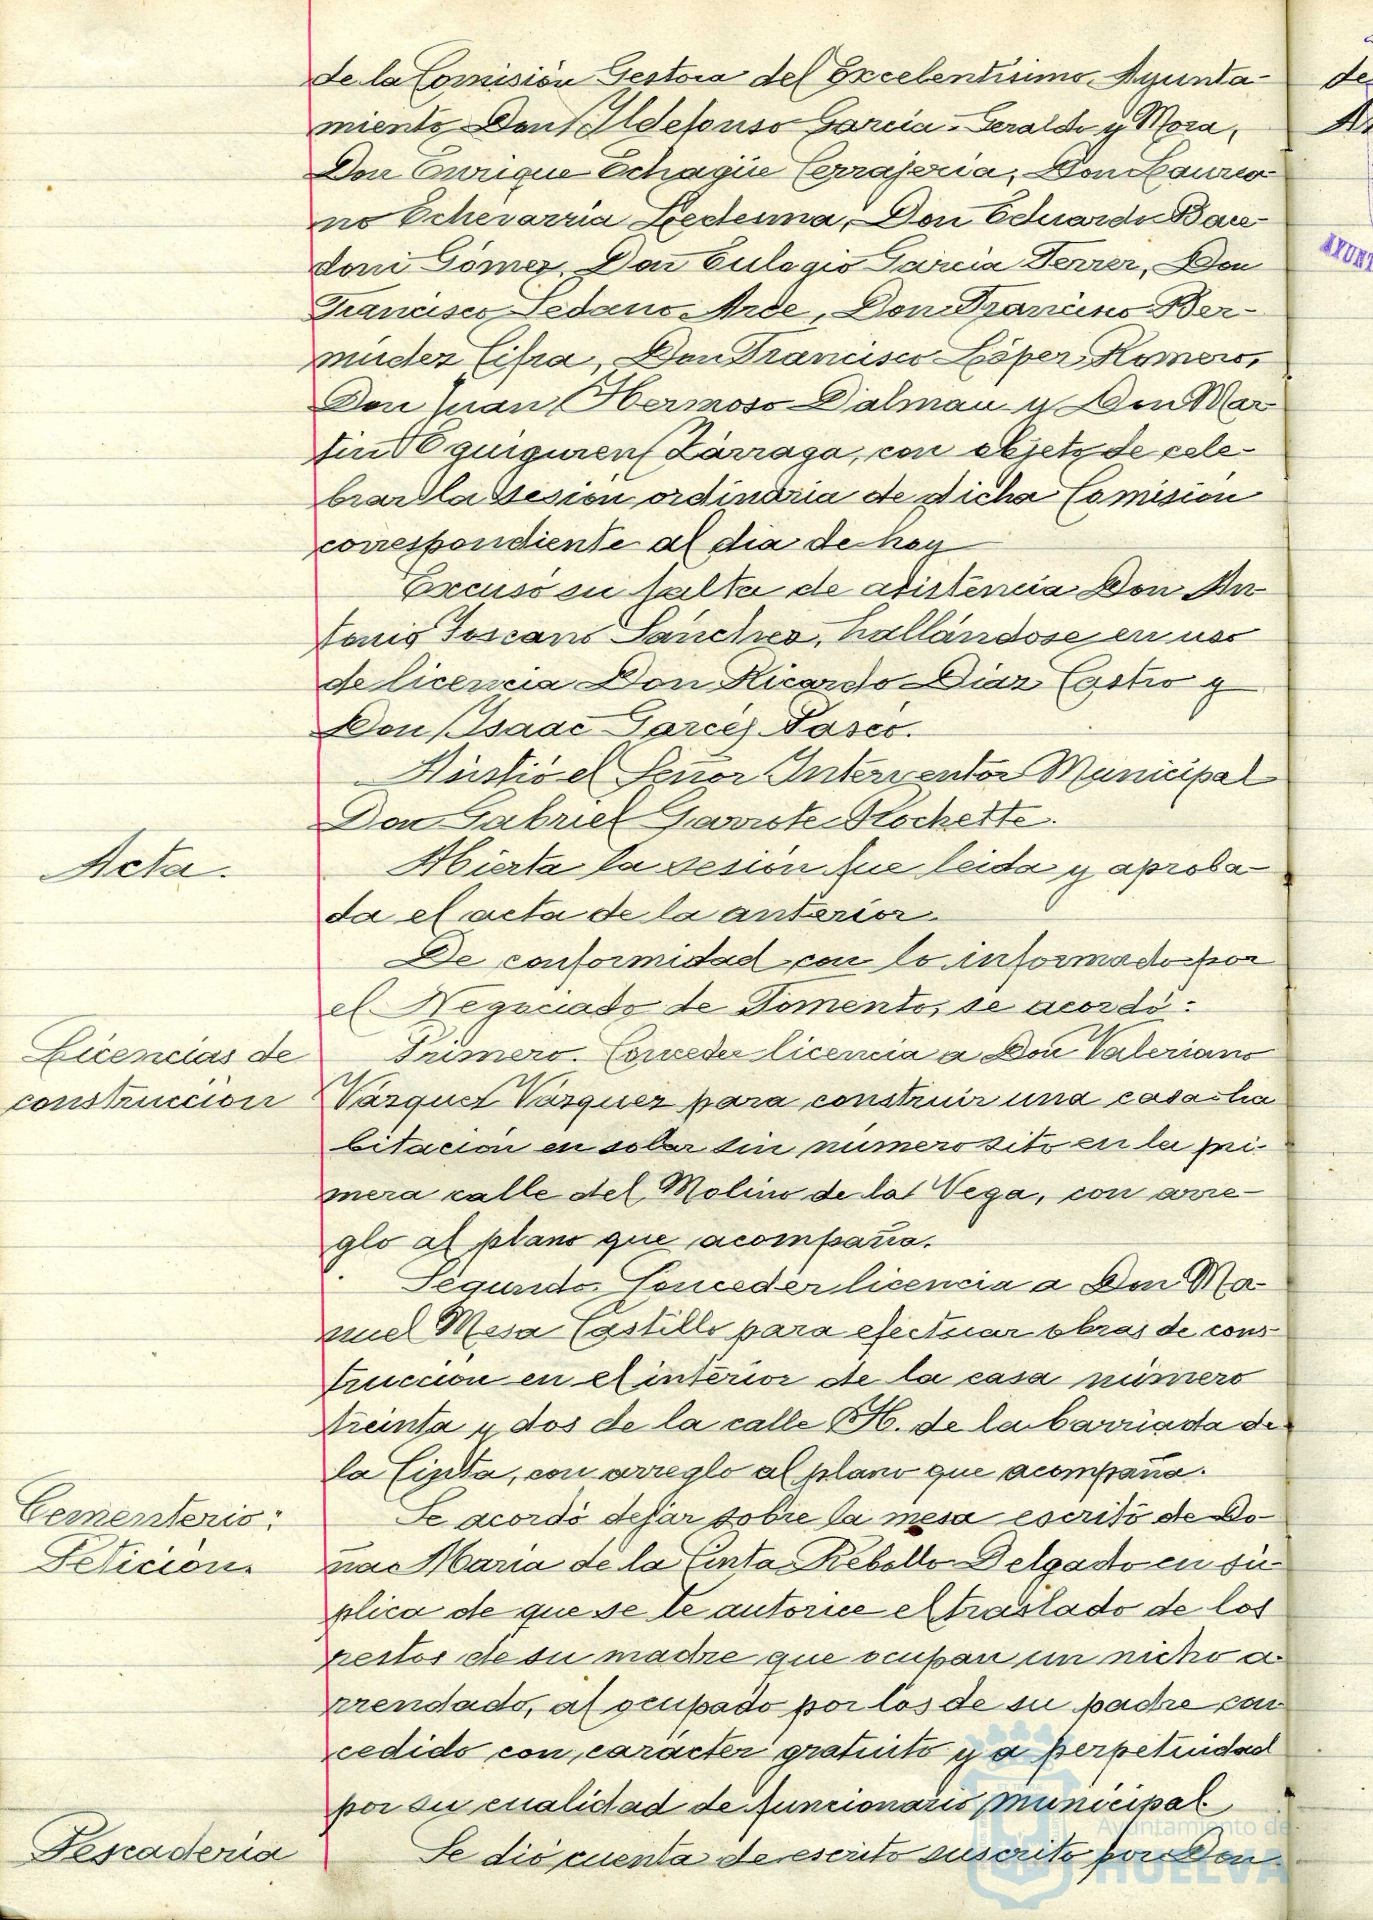 de la Comisión Gestora del Excelentísimo Ayunta-
miento Don Ildefonso Garcia-Geraldo y Mora,
Don Enrique Echagüe Cerrajeria, Don Laurea
no Echevarria Ledesma, Don Eduardo Bace
doni Gómez, Don Eulogio Garcia Ferrer, Don
Francisco Sedano Arce, Don Francisco Ber-
mudez Cifra, Don Francisco López Romero,
Don Juan Hermoso Dalmau y Don Mar
tin Eguiguren Zárraga, con objeto de cele-
brar la sesión ordinaria de dicha Comisión
correspondiente al dia de hoy
Excusó su falta de asistencia Don An
tonio Toscano Sánchez, hallándose en uso
de licencia Don Ricardo Diaz Castro y
Don Isaac Garcés Paseo.
Asistió el Señor Interventor Municipal
Don Gabriel Garrote Rochette.
Acta.
Abierta la sesión fue leida y aproba-
da el acta de la anterior.
De conformidad con lo informado por
el Negociado de Fomento, se acordó:
Licencias de
construcción
Primero. Conceder licencia a Don Valeriano
Vázquez Vázquez para construir una casa-ha
bitación en solar sin número sito en la pri-
mera calle del Molino de la Vega, con arre-
glo al plano que acompaña.
Segundo. Conceder licencia a Don Ma-
nuel Mesa Castillo para efectuar obras de cons-
trucción en el interior de la casa número
treinta y dos de la calle H. de la barriada de
la Cinta, con arreglo al plano que acompaña.
Cementerio:
Petición.
Se acordó dejar sobre la mesa escrito de Do-
ña Maria de la Cinta Rebollo Delgado en sú-
plica de que se le autorice el traslado de los
restos de su madre que ocupan un nicho a-
rrendado, al ocupado por los de su padre con
cedido con carácter gratuito y a perpetuidad
por su cualidad de funcionario municipal.
Pescaderia
Se dió cuenta de escrito suscrito por Don
de
AYUNT
Ayuntamiento de
HUELVA